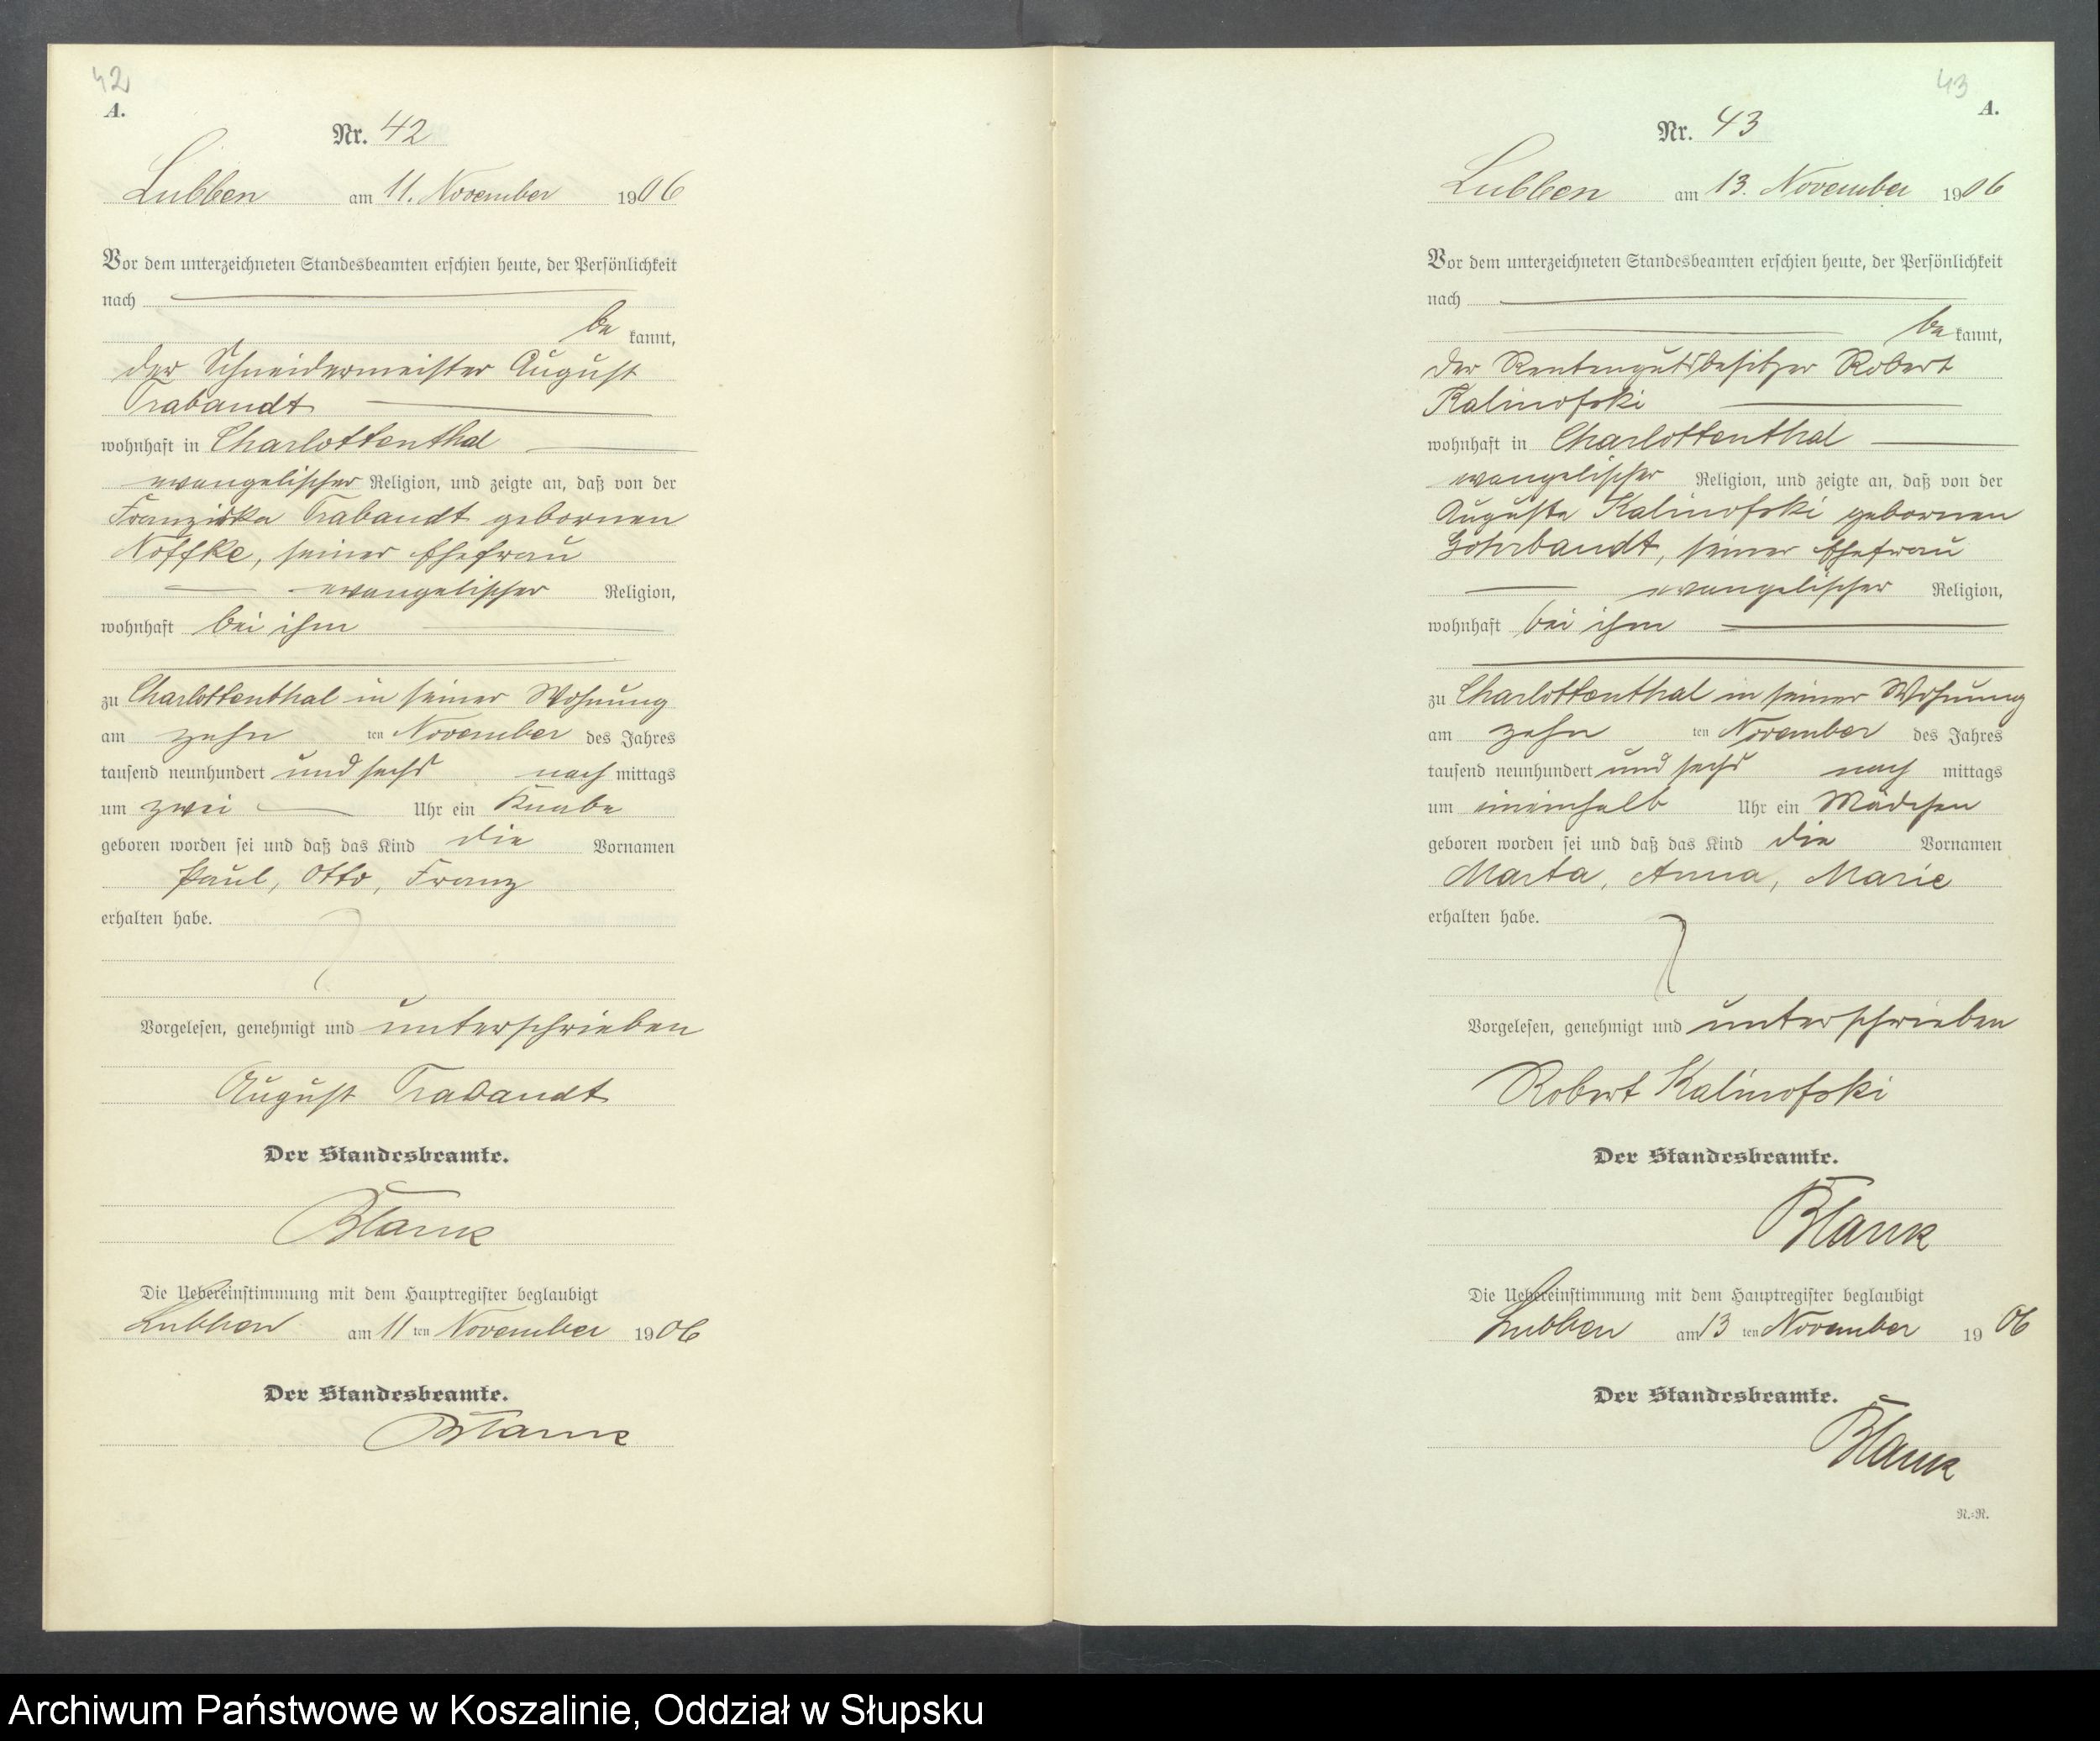 42
A.
Nr. 42
Lubben am 11. November 1906
Vor dem unterzeichneten Standesbeamten erschien heute, der Persönlichkeit
nach
be kannt,
der Schneidermeister August
Trabandt
wohnhaft in Charlottenthal
evangelischer Religion, und zeigte an, daß von der
Franziska Trabandt gebornen
Noffke, seiner Ehefrau
evangelischer Religion,
wohnhaft bei ihm
zu Charlottenthal in seiner Wohnung
am zehn ten November des Jahres
tausend neunhundert und sechs nach mittags
um zwei Uhr ein Knabe
geboren worden sei und daß das Kind die Vornamen
Paul, Otto, Franz
erhalten habe.
Vorgelesen, genehmigt und unterschrieben
August Trabandt
Der Standesbeamte.
Blank
Die Uebereinstimmung mit dem Hauptregister beglaubigt
Lubben am 11 ten November 1906
Der Standesbeamte.
Blank
43
A.
Nr. 43
Lubben am 13. November 1906
Vor dem unterzeichneten Standesbeamten erschien heute, der Persönlichkeit
nach
be kannt,
der Rentengutsbesitzer Robert
Kalinofski
wohnhaft in Charlottenthal
evangelischer Religion, und zeigte an, daß von der
Auguste Kalinofski gebornen
Gohrbandt, seiner Ehefrau
evangelischer Religion,
wohnhaft bei ihm
zu Charlottenthal in seiner Wohnung
am zehn ten November des Jahres
tausend neunhundert und sechs nach mittags
um eineinhalb Uhr ein Mädchen
geboren worden sei und daß das Kind die Vornamen
Marta, Anna, Marie
erhalten habe.
Vorgelesen, genehmigt und unterschrieben
Robert Kalinofski
Der Standesbeamte.
Blank
Die Uebereinstimmung mit dem Hauptregister beglaubigt
Lubben am 13 ten November 1906
Der Standesbeamte.
Blank
R.=R.
Archiwum Państwowe w Koszalinie, Oddział w Słupsku